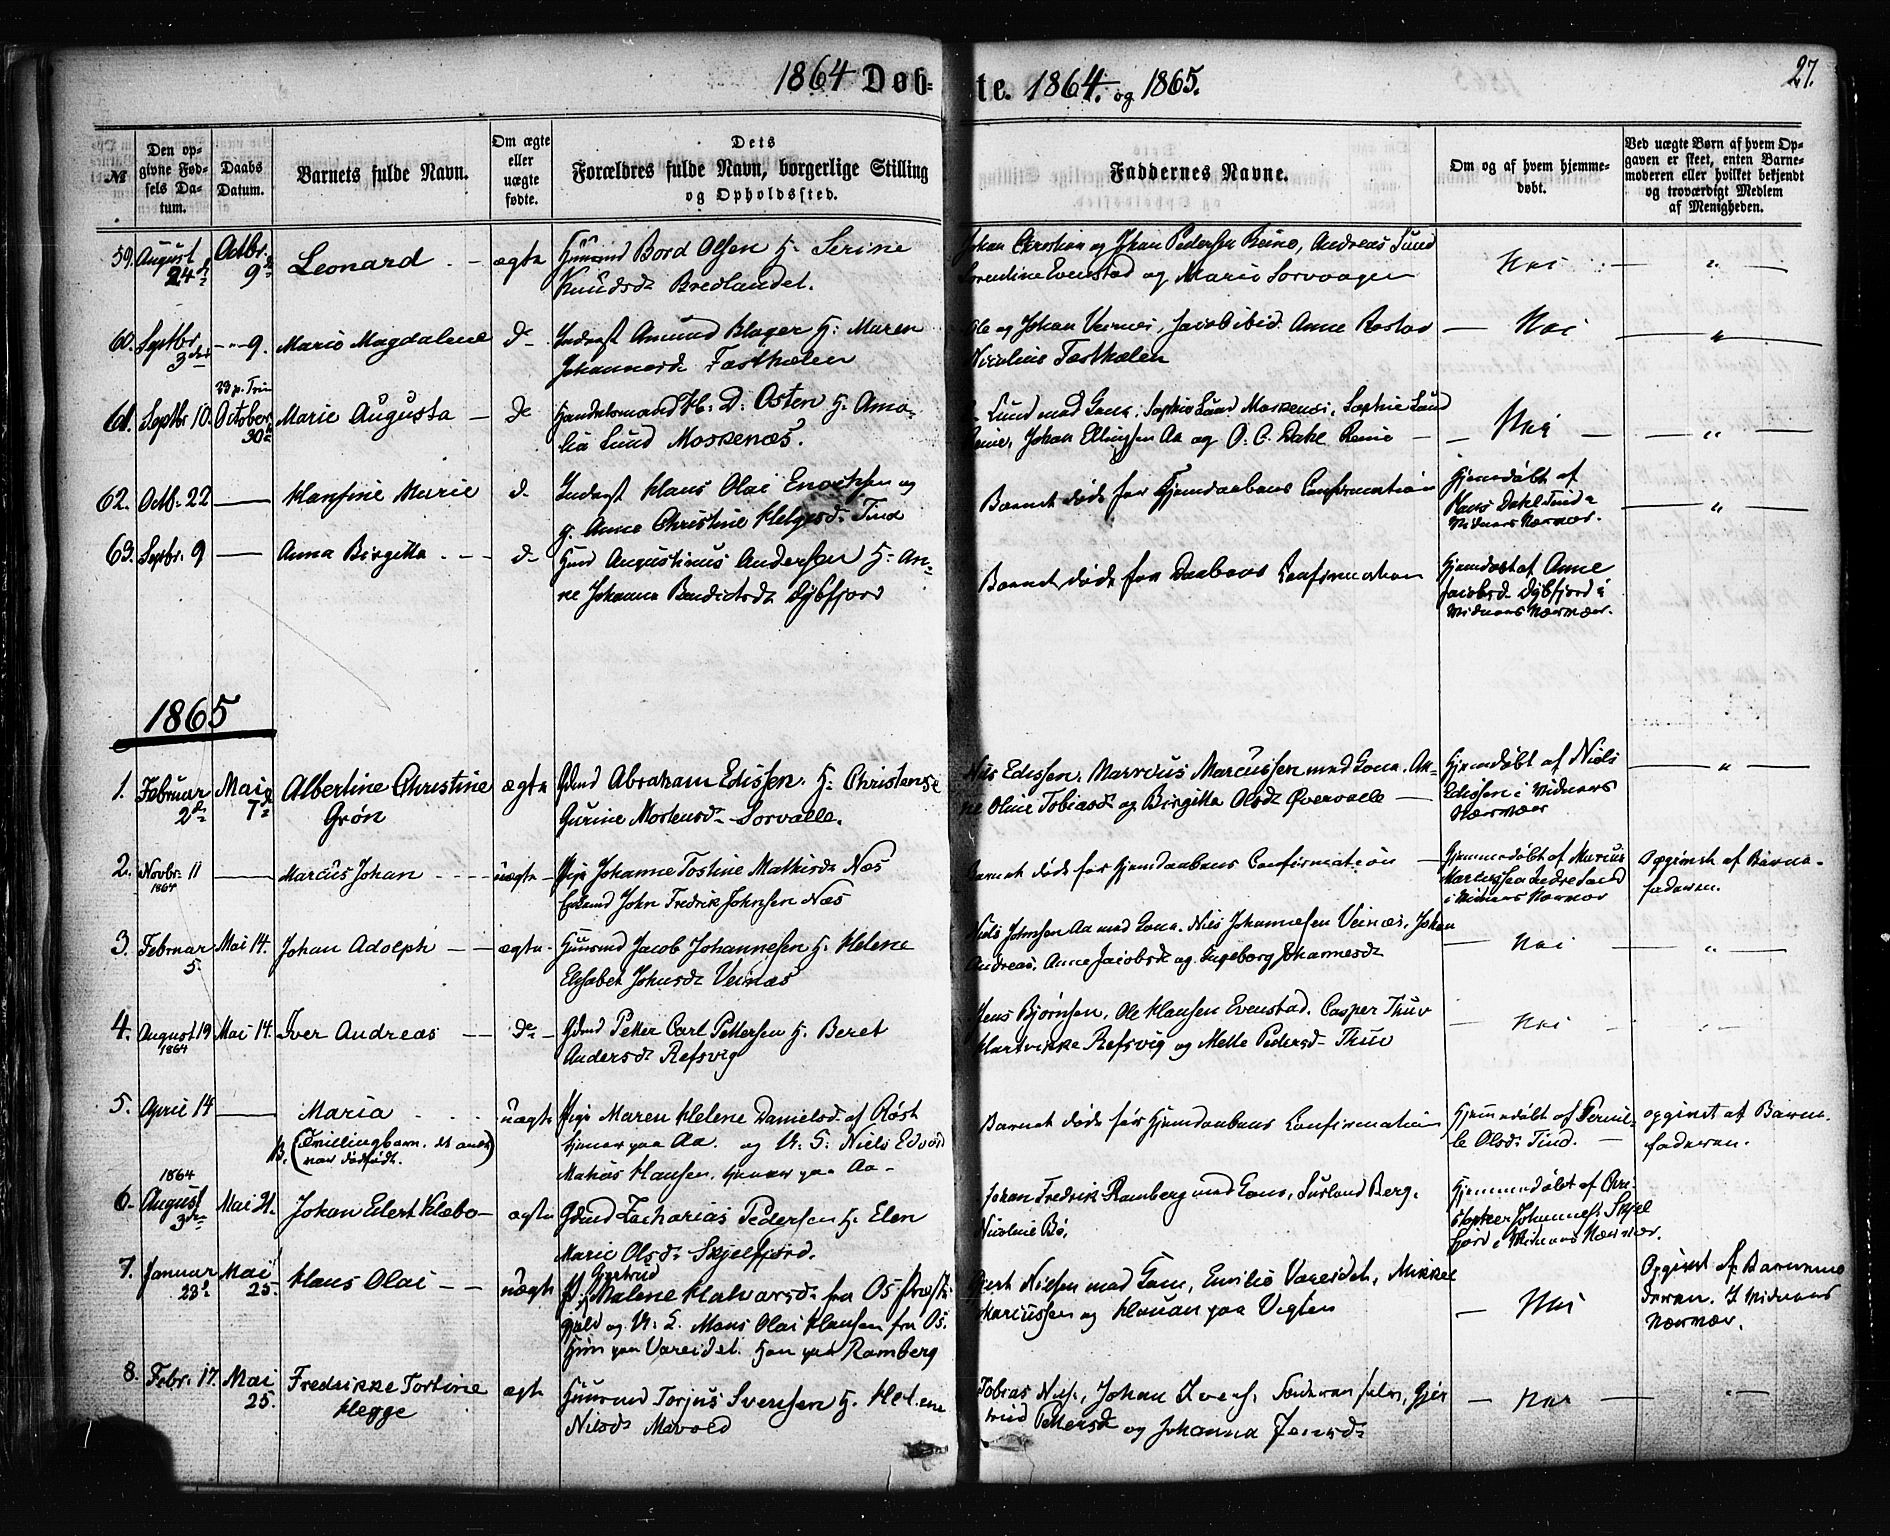 1864 Døb= te. 1864. og 1865.
27.
№
Den op-
givne Fød-
sels Da-
tum.
Daabs
Datum.
Barnets fulde Navn.
Om ægte
eller
uægte
fødte.
Dets
Forældres fulde Navn, borgerlige Stilling
og Opholdssted.
Faddernes Navne.
Om og af hvem hjemme-
døbt.
Ved uægte Børn af hvem Op-
gaven er skeet, enten Barne-
moderen eller hvilket bekjendt
og troværdigt Medlem
af Menigheden.
59. August 24 Octbr. 9 Leonard ægte
Huusmd Bord Olsen H: Serine
Knudsd. Bredlandet.
Johan Christian og Johan Pedersen Reine, Andreas Lund
Sorentine Evenstad og Marie Sorvaagen
Nei
60. Septbr 3die 9. Marie Magdalene do
Inderst Amund Blager H: Maren
Johannesd. Fasthælen
Ole og Johan Veines, Jacob ibid. Anne Rostad
Nicoline Fasthælen
Nei
61. Septbr 10. 23 p. Trin October 30 Marie Augusta do
Handelsmand H: D: Osten H: Ama-
lia Lund Moskenæs.
Lund med Kona, Sophie Lund Moskenæs, Sophie Lund
Reine, Johan Ellingsen Aa og O. C. Dahl Reine
Nei
62. Octb. 22 Hansine Marie do
Inderst Hans Olai Enochsen og
H. Anne Christine Helgesd. Tind
Barnet døde før Hjemdaabens Confirmation
Hjemdøbt af
Hans Dahl Tind i
Vidners Nærvær.
63. Septbr. 9 Anna Birgitta do
Huusmd Augustinus Andersen H: An-
ne Johanna Benedictsd. Dybfjord
Barnet døde før Daabens Confirmation
Hjemdøbt af Anne
Jacobsd. Dybfjord i
Vidners Nærvær.
1865
1. Februar 2 Mai 7 Albertine Christine
Grøn
ægte
Gdmd Abraham Edissen. H: Christense
Gurine Mortensd. Sorvalle.
Nils Edissen, Marcus Marcussen med Kona, An-
ne Oline Tobiasd. og Birgitte Olsd. Øvervalle
Hjemdøbt af Niels
Edissen i Vidners
Nærvær
2. Novbr. 11 1864 Marcus Johan uægte
Pige Johanne Tostine Mathisd. Næs
Enkemd John Fredrik Johnsen Næs
Barnet døde før Hjemdaabens Confirmation
Hjemmedøbt af Marcus
Marcussen Indre Sund
i Vidners Nærvær
Opgivet af Barne-
faderen.
3. Februar 5. Mai 14. Johan Adolph ægte
Huusmd Jacob Johannesen H. Helene
Elisabet Johnsd. Veinæs
Niels Johnsen Aa med Kona. Nils Johannesen Veinæs, Johan
Andreas, Anne Jacobsd. og Ingeborg Johannesd.
Nei
4. August 19 1864 Mai 14. Iver Andreas do
Gdmd Petter Carl Pettersen H. Beret
Andersd. Refsvig
Jens Bjørnsen, Ole Hansen Evenstad. Casper Thuv
Hartvikke Refsvig og Mette Pedersd. Thuv
Nei
5. April 14 Maria
(Trillingbarn. de andre
var dødfødt.)
uægte
Pige Maren Helene Danielsd. af Røst
tjener paa Aa. og U. K: Niels Edvard
Mathias Hansen, tjener paa Aa.
Barnet døde før Hjemdaabens Confirmation
Hjemmedøbt af Pernil-
le Olsd. Tind.
opgivet af Barne-
faderen.
1864
6. August 3die Mai 21. Johan Eilert Klæbo ægte
Gdmd Zacharias Pedersen H. Elen
Marie Olsd. Skjelfjord.
Johan Fredrik Ramberg med Kone, Sursand Berg.
Nicoline Bø.
Hjemmedøbt af Chri-
stopher Johannes. Skjel
fjord i Vidners Nærvær.
7. Januar 23 Mai 25. Hans Olai uægte
P. Gjertrud Malene Halvarsd. fra Os Præste-
gjeld og U. K. Mons Olai Hansen fra Os.
Hun paa Vareidet. Han paa Ramberg
Gjert Nielsen med Kone, Emilie Vareidet, Mikkel
Marcussen og Hanan paa Vigten
Nei
Opgivet af Barnemo
deren. I Vidners
Nærvær.
8. Febr. 17. Mai 25. Fredrikke Torbine
Hegge
ægte
Huusmd Torjus Svensen H. Helene
Nilsd. Mavold
Tobias Nils., Johan Ivers. Faderen selv, Gjer
trud Pettersd. og Johanna Jensd.
Nei